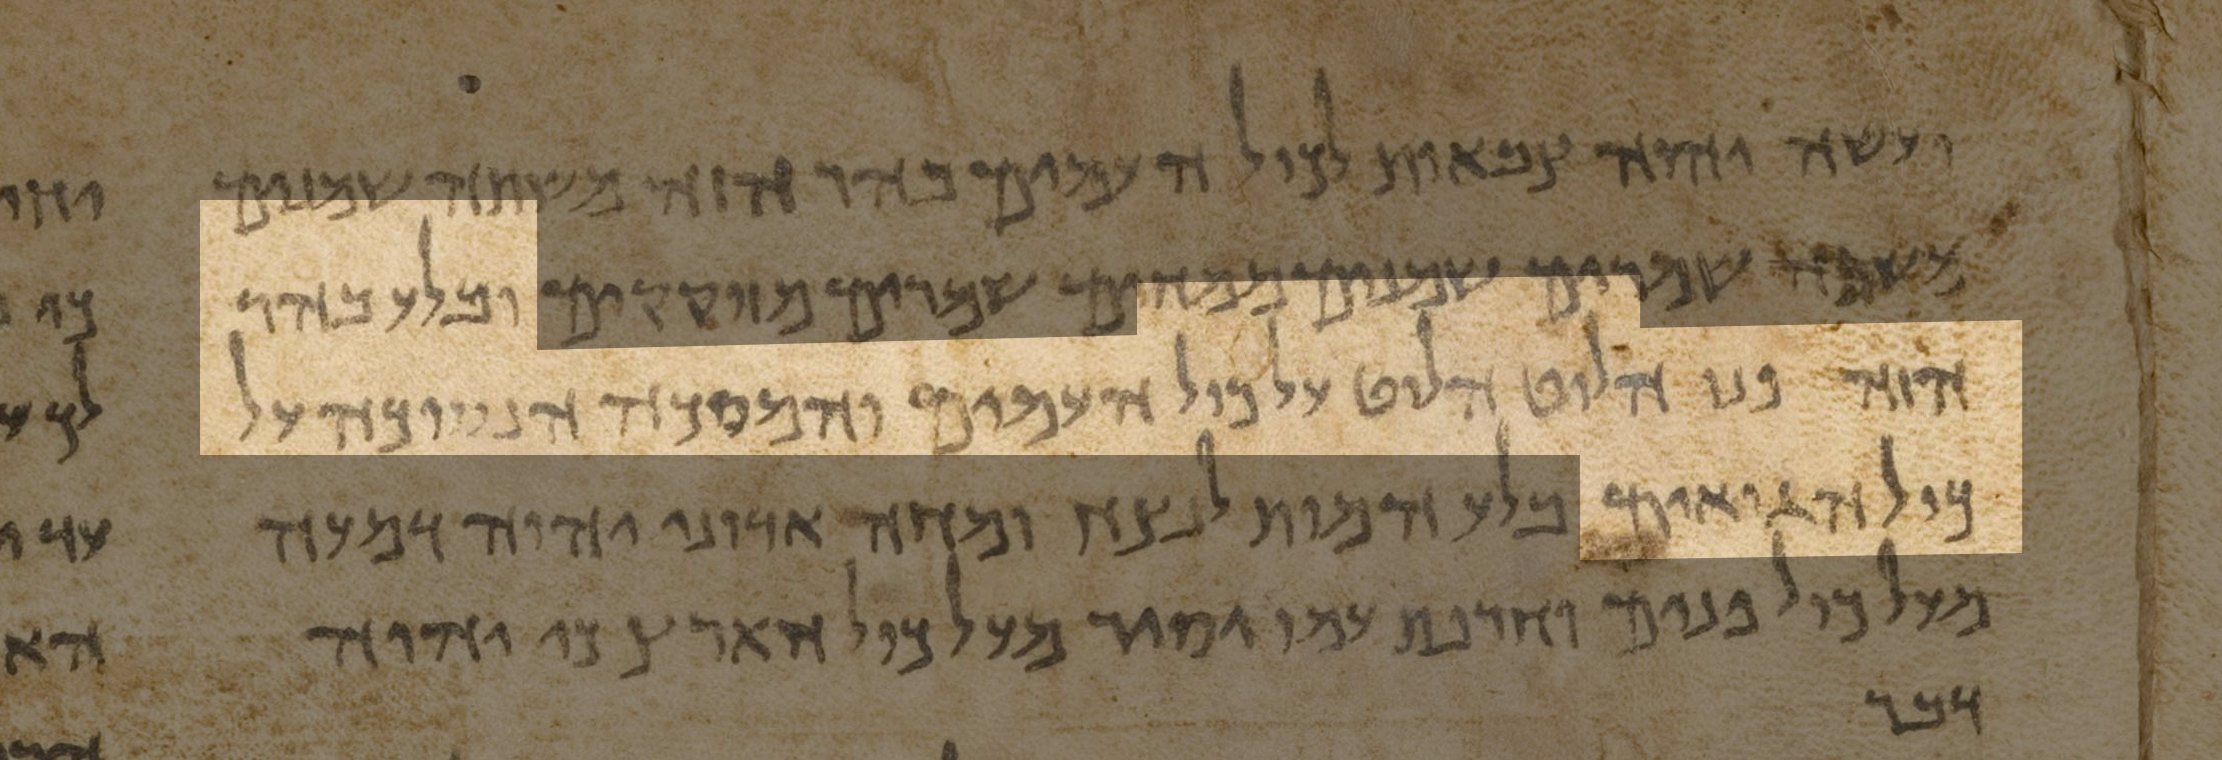 ועשה יהוה צבאות לכול העמים בהר הזה משתה שמנים
משתה שמרים שמנים ממחים שמרים מזוקקים ובלע בהר
הזה פני הלוט הלוט על כול העמים והמסכה הנסוכה על
כול הגואים בלע המות לנצח ומחה אדוני יהוה דמעה
מעל כול פנים וחרפת עמו יסיר מעל כול הארץ כי יהוה
דבר